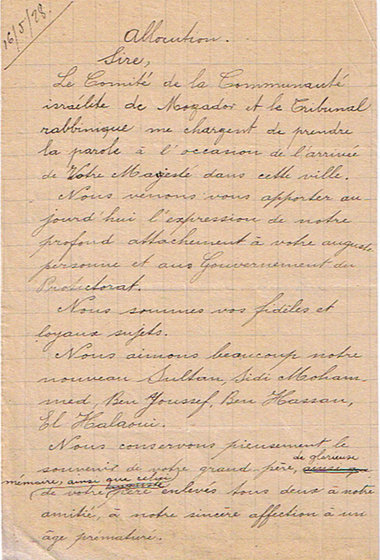 16/5/28.
Allocution.
Sire,
Le Comité de la Communauté
israélite de Mogador et le Tribunal
rabbinique me chargent de prendre
la parole à l'occasion de l'arrivée
de Votre Majesté dans cette ville.
Nous venons vous apporter au
jourd'hui l'expression de notre
profond attachement à votre auguste
personne et au Gouvernement du
Protectorat.
Nous sommes vos fidèles et
loyaux sujets.
Nous aimons beaucoup notre
nouveau Sultan Sidi Moham-
med, Ben Youssef, Ben Hassan,
El Halaoui.
Nous conservons pieusement le
souvenir de votre grand père, de glorieuse
mémoire, ainsi que celui
de votre père enlevés tous deux à notre
amitié, à notre sincère affection à un
âge prématuré.